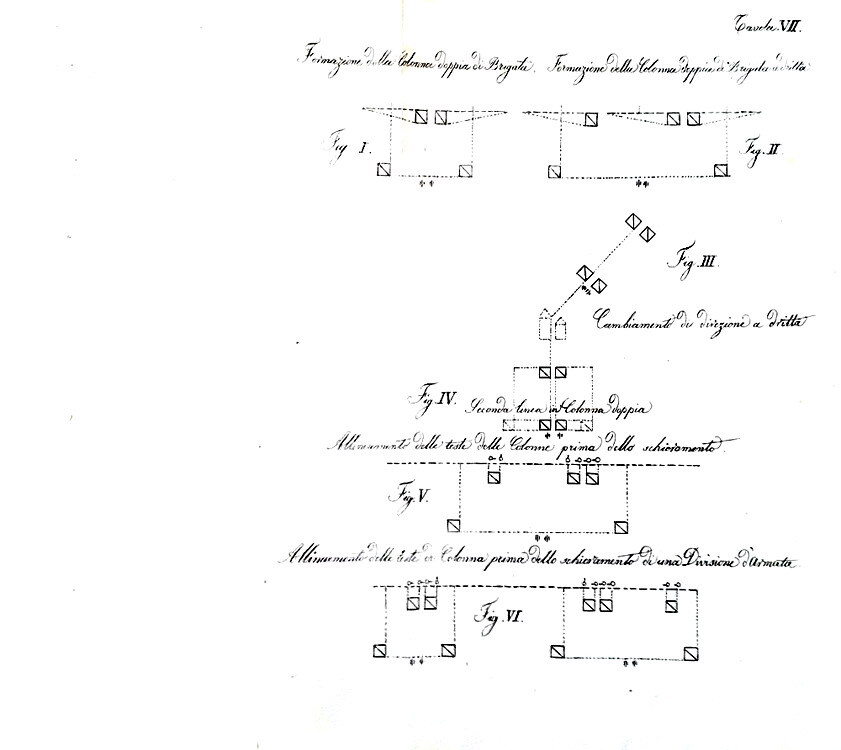 Tavola VII.
Formazione della Colonna doppia di Brigata.
Formazione della Colonna doppia di Brigata a dritta
Fig I.
Fig. II
Fig. III
Cambiamento di direzione a dritta
Fig. IV.
Seconda linea in Colonna doppia
Allineamento delle teste delle Colonne prima dello schieramento.
Fig. V.
Allineamento delle teste di Colonna prima dello schieramento di una Divisione d'Armata
Fig. VI.